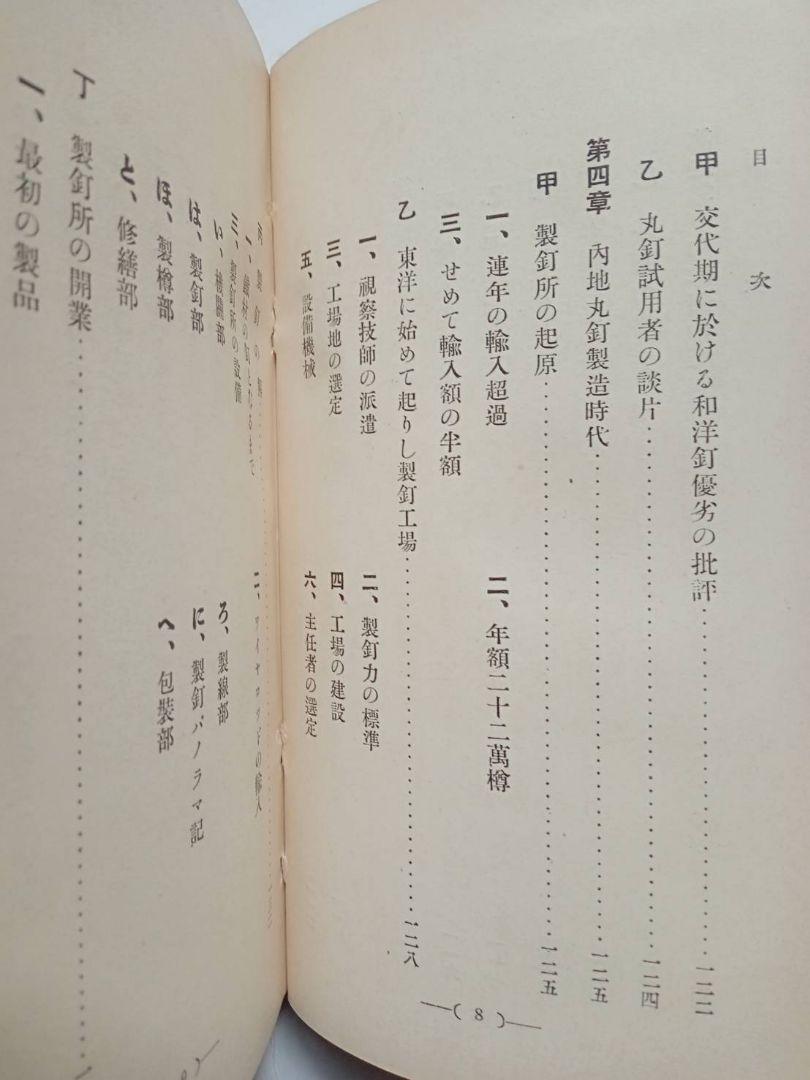 目次
甲 交代期に於ける和洋釘優劣の批評……一二二
乙 丸釘試用者の談片……一二四
第四章 內地丸釘製造時代……一二五
甲 製釘所の起原……一二五
一、連年の輸入超過 二、年額二十二萬樽
三、せめて輸入額の半額
乙 東洋に始めて起りし製釘工場……一二八
一、視察技師の派遣 二、製釘力の標準
三、工場地の選定 四、工場の建設
五、設備機械 六、主任者の選定
—( 8 )—
丙 製釘の
一、 二、ワイヤロッドの輸入
三、製釘所の設備
い、機關部 ろ、製線部
は、製釘部 に、製釘パノラマ記
ほ、製樽部 へ、包裝部
と、修繕部
丁 製釘所の開業……
一、最初の製品